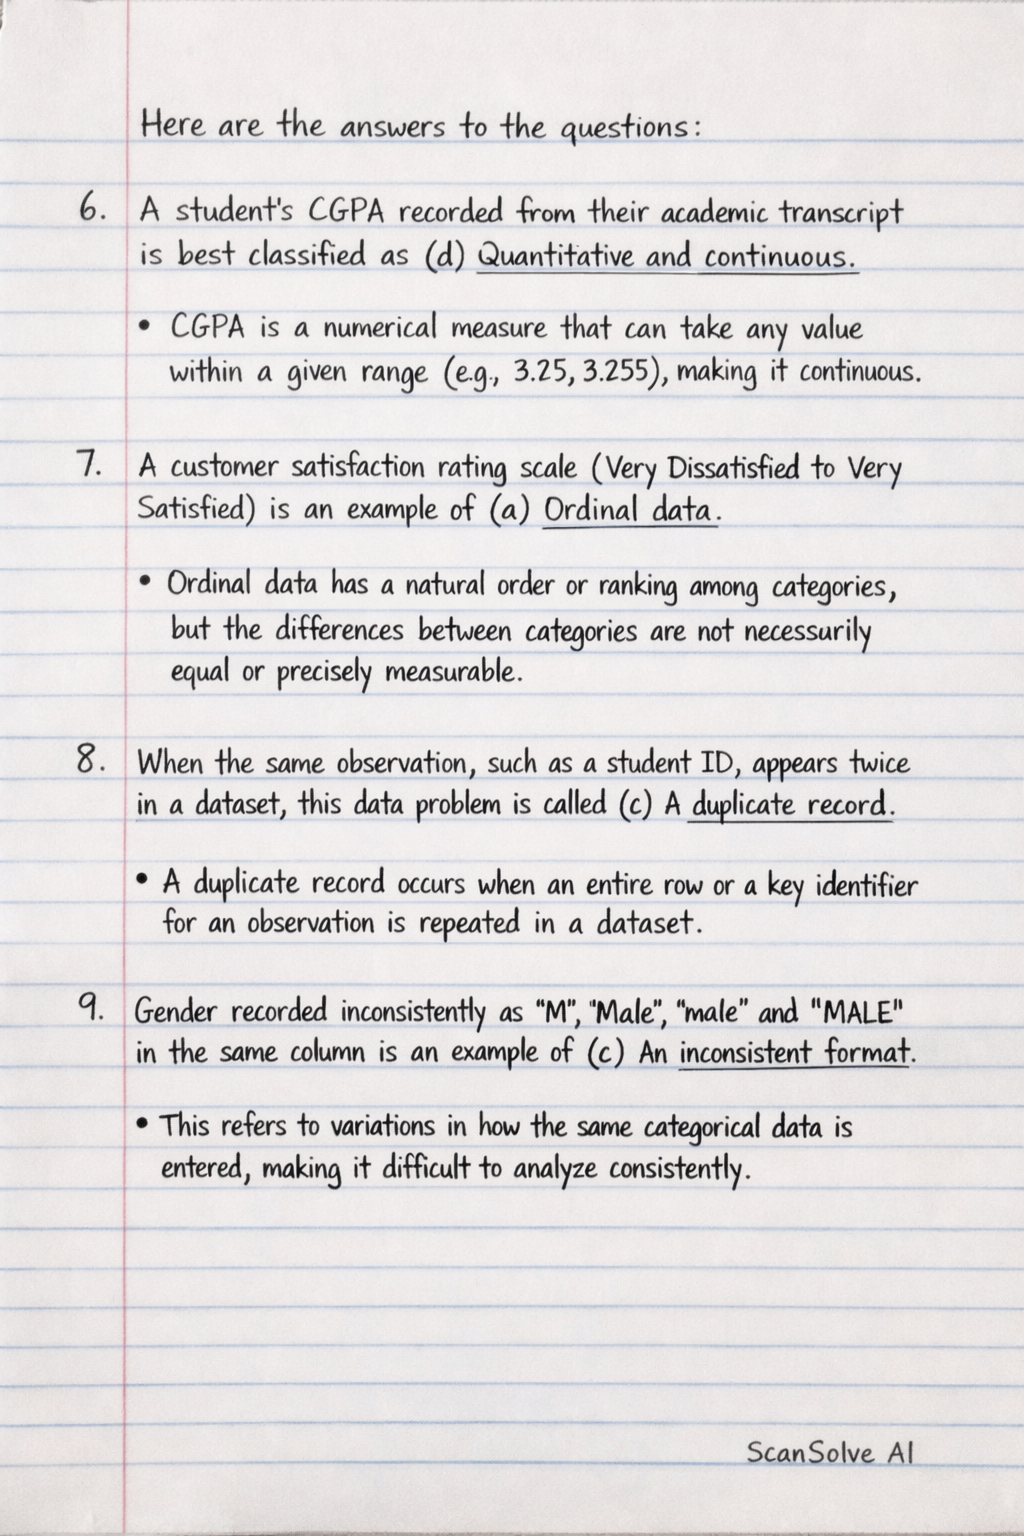 Here are the answers to the questions:
6. A student's CGPA recorded from their academic transcript
is best classified as (d) Quantitative and continuous.
• CGPA is a numerical measure that can take any value
within a given range (e.g., 3.25, 3.255), making it continuous.
7. A customer satisfaction rating scale (Very Dissatisfied to Very
Satisfied) is an example of (a) Ordinal data.
• Ordinal data has a natural order or ranking among categories,
but the differences between categories are not necessurily
equal or precisely measurable.
8. When the same observation, such as a student ID, appears twice
in a dataset, this data problem is called (c) A duplicate record.
• A duplicate record occurs when an entire row or a key identifier
for an observation is repeated in a dataset.
9. Gender recorded inconsistently as "M", "Male", "male" and "MALE"
in the same column is an example of (c) An inconsistent format.
• This refers to variations in how the same categorical data is
entered, making it difficult to analyze consistently.
ScanSolve AI